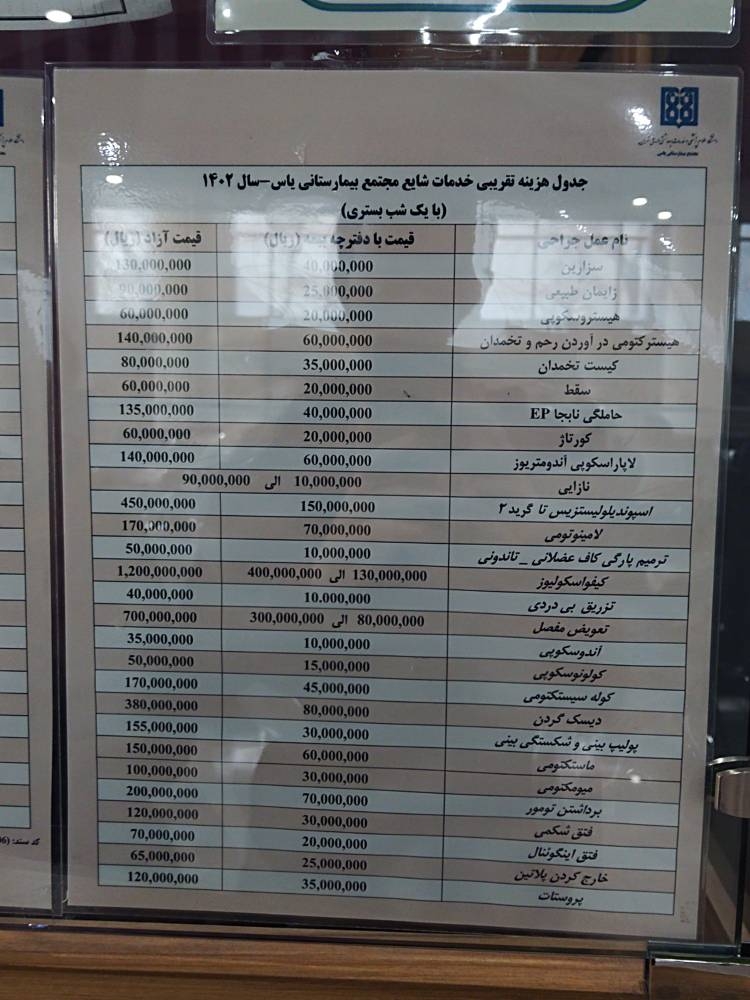 دانشگاه علوم پزشکی و خدمات بهداشتی درمانی تهران
مجتمع بیمارستانی یاس
جدول هزینه تقریبی خدمات شایع مجتمع بیمارستانی یاس-سال ۱۴۰۲
(با یک شب بستری)
نام عمل جراحی قیمت با دفترچه بیمه (ریال) قیمت آزاد (ریال)
سزارین 40,000,000 130,000,000
زایمان طبیعی 25,000,000 90,000,000
هیستروسکوپی 20,000,000 60,000,000
هیسترکتومی در آوردن رحم و تخمدان 60,000,000 140,000,000
کیست تخمدان 35,000,000 80,000,000
سقط 20,000,000 60,000,000
حاملگی نابجا EP 40,000,000 135,000,000
کورتاژ 20,000,000 60,000,000
لاپاراسکوپی آندومتریوز 60,000,000 140,000,000
نازایی 10,000,000 الی 90,000,000
اسپوندیلولیستزیس تا گرید ۲ 150,000,000 450,000,000
لامینوتومی 70,000,000 170,000,000
ترمیم پارگی کاف عضلانی _ تاندونی 10,000,000 50,000,000
کیفواسکولیوز 130,000,000 الی 400,000,000 1,200,000,000
تزریق بی دردی 10.000,000 40,000,000
تعویض مفصل 80,000,000 الی 300,000,000 700,000,000
آندوسکوپی 10,000,000 35,000,000
کولونوسکوپی 15,000,000 50,000,000
کوله سیستکتومی 45,000,000 170,000,000
دیسک گردن 80,000,000 380,000,000
پولیپ بینی و شکستگی بینی 30,000,000 155,000,000
ماستکتومی 60,000,000 150,000,000
میومکتومی 30,000,000 100,000,000
برداشتن تومور 70,000,000 200,000,000
فتق شکمی 30,000,000 120,000,000
فتق اینگوئنال 20,000,000 70,000,000
خارج کردن پلاتین 25,000,000 65,000,000
پروستات 35,000,000 120,000,000